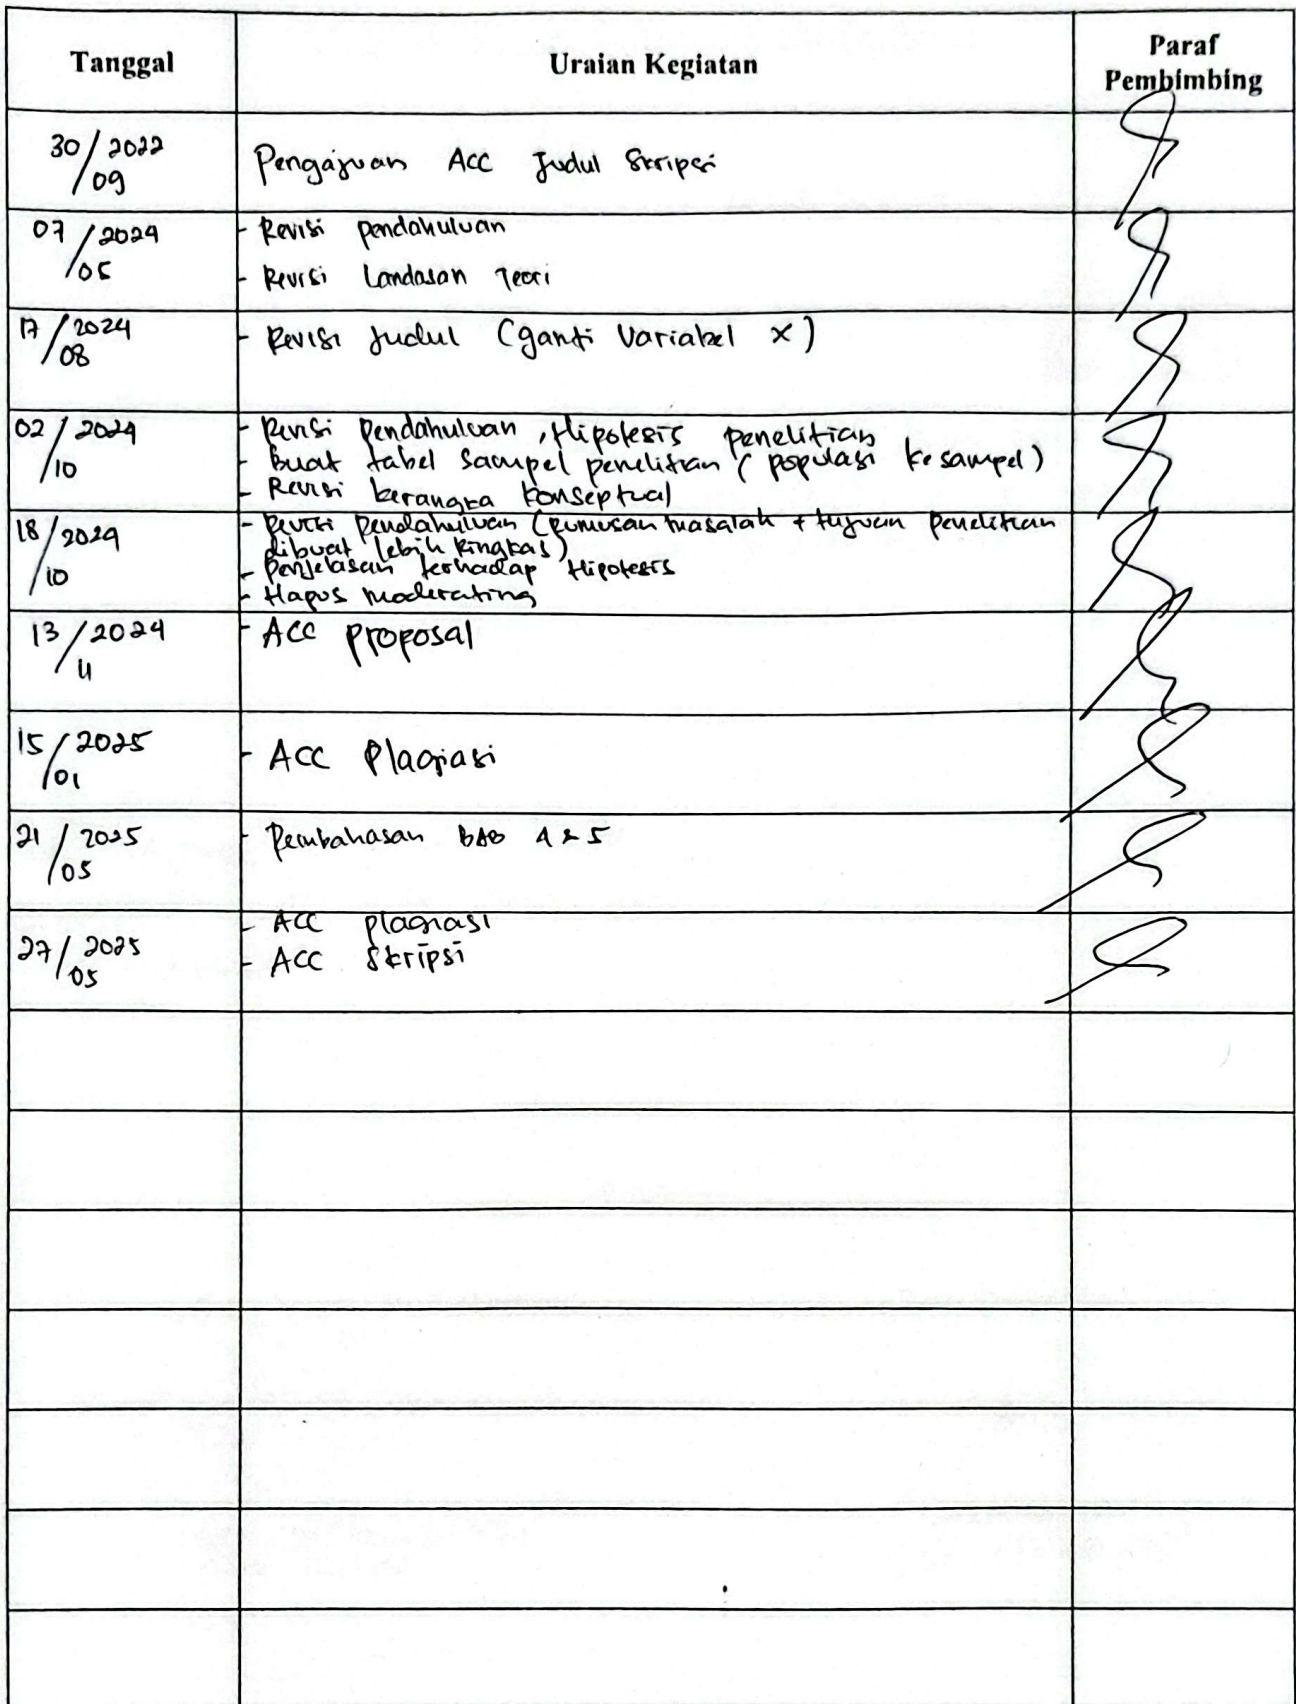 Tanggal Uraian Kegiatan Paraf Pembimbing
30/2022
09
Pengajuan ACC Judul Skripsi
07/2024
05
- Revisi pendahuluan
- Revisi Landasan Teori
17/2024
08
- Revisi Judul (ganti Variabel X)
02/2024
10
- Revisi Pendahuluan, Hipotesis penelitian
- Buat tabel Sampel penelitian (populasi ke sampel)
- Revisi kerangka konseptual
18/2024
10
- Revisi Pendahuluan (Rumusan masalah + tujuan penelitian
dibuat lebih ringkas)
- Penjelasan terhadap Hipotesis
- Hapus moderating
13/2024
11
- ACC Proposal
15/2025
01
- ACC Plagiasi
21/2025
05
- Pembahasan BAB 4 & 5
27/2025
05
- ACC plagiasi
- ACC Skripsi